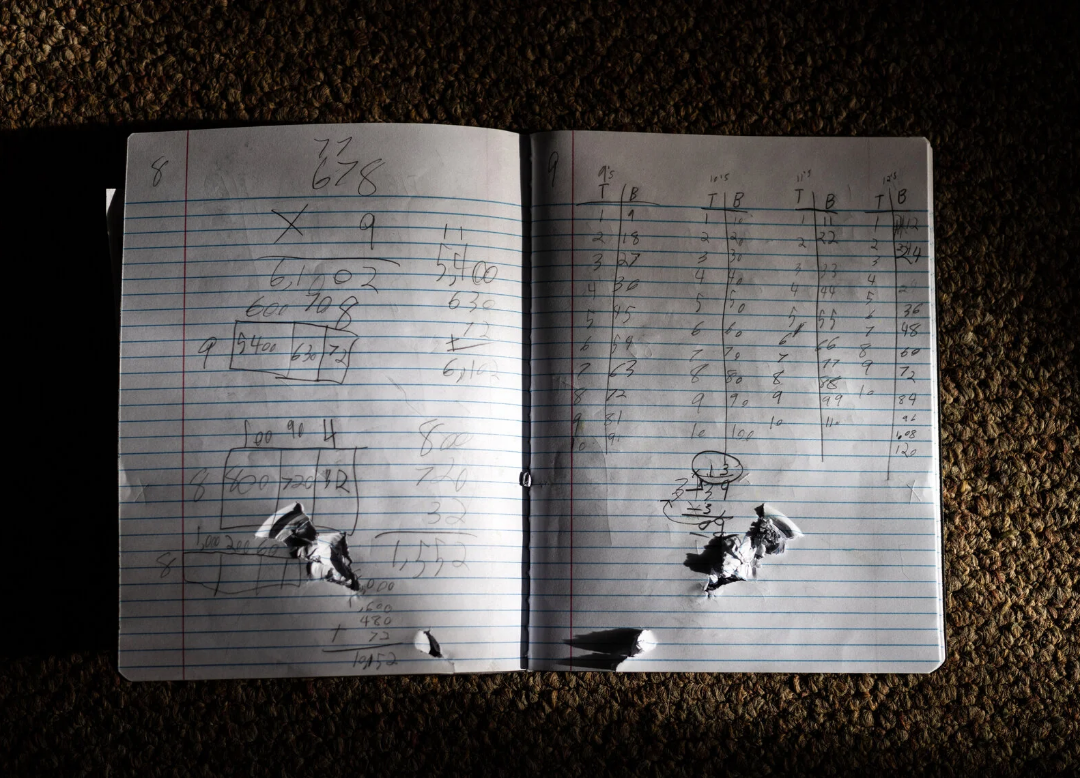 8
77
678
X 9
6,102
600 70 8
9 5400 630 72
11
5,400
630
+ 72
6,102
100 90 4
8 800 720 32
800
720
32
1,552
1,000 200 60
8
,000
,600
480
+ 72
10,152
9
9's
T B
1 9
2 18
3 27
4 30
5 45
6 54
7 63
8 72
9 81
10 91
10's
T B
1 10
2 20
3 30
4 40
5 50
6 60
7 70
8 80
9 90
10 100
11's
T B
1 11
2 22
3 33
4 44
5 55
6 66
7 77
8 88
9 99
10 110
12's
T B
1 12
2 24
3
4
5 36
6 48
7 60
8 72
9 84
10 96
108
120
13
3 39
-3
09